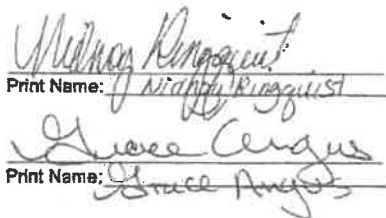 Ringquist
Print Name: Ringquist
Grace Angus
Print Name: Grace Angus